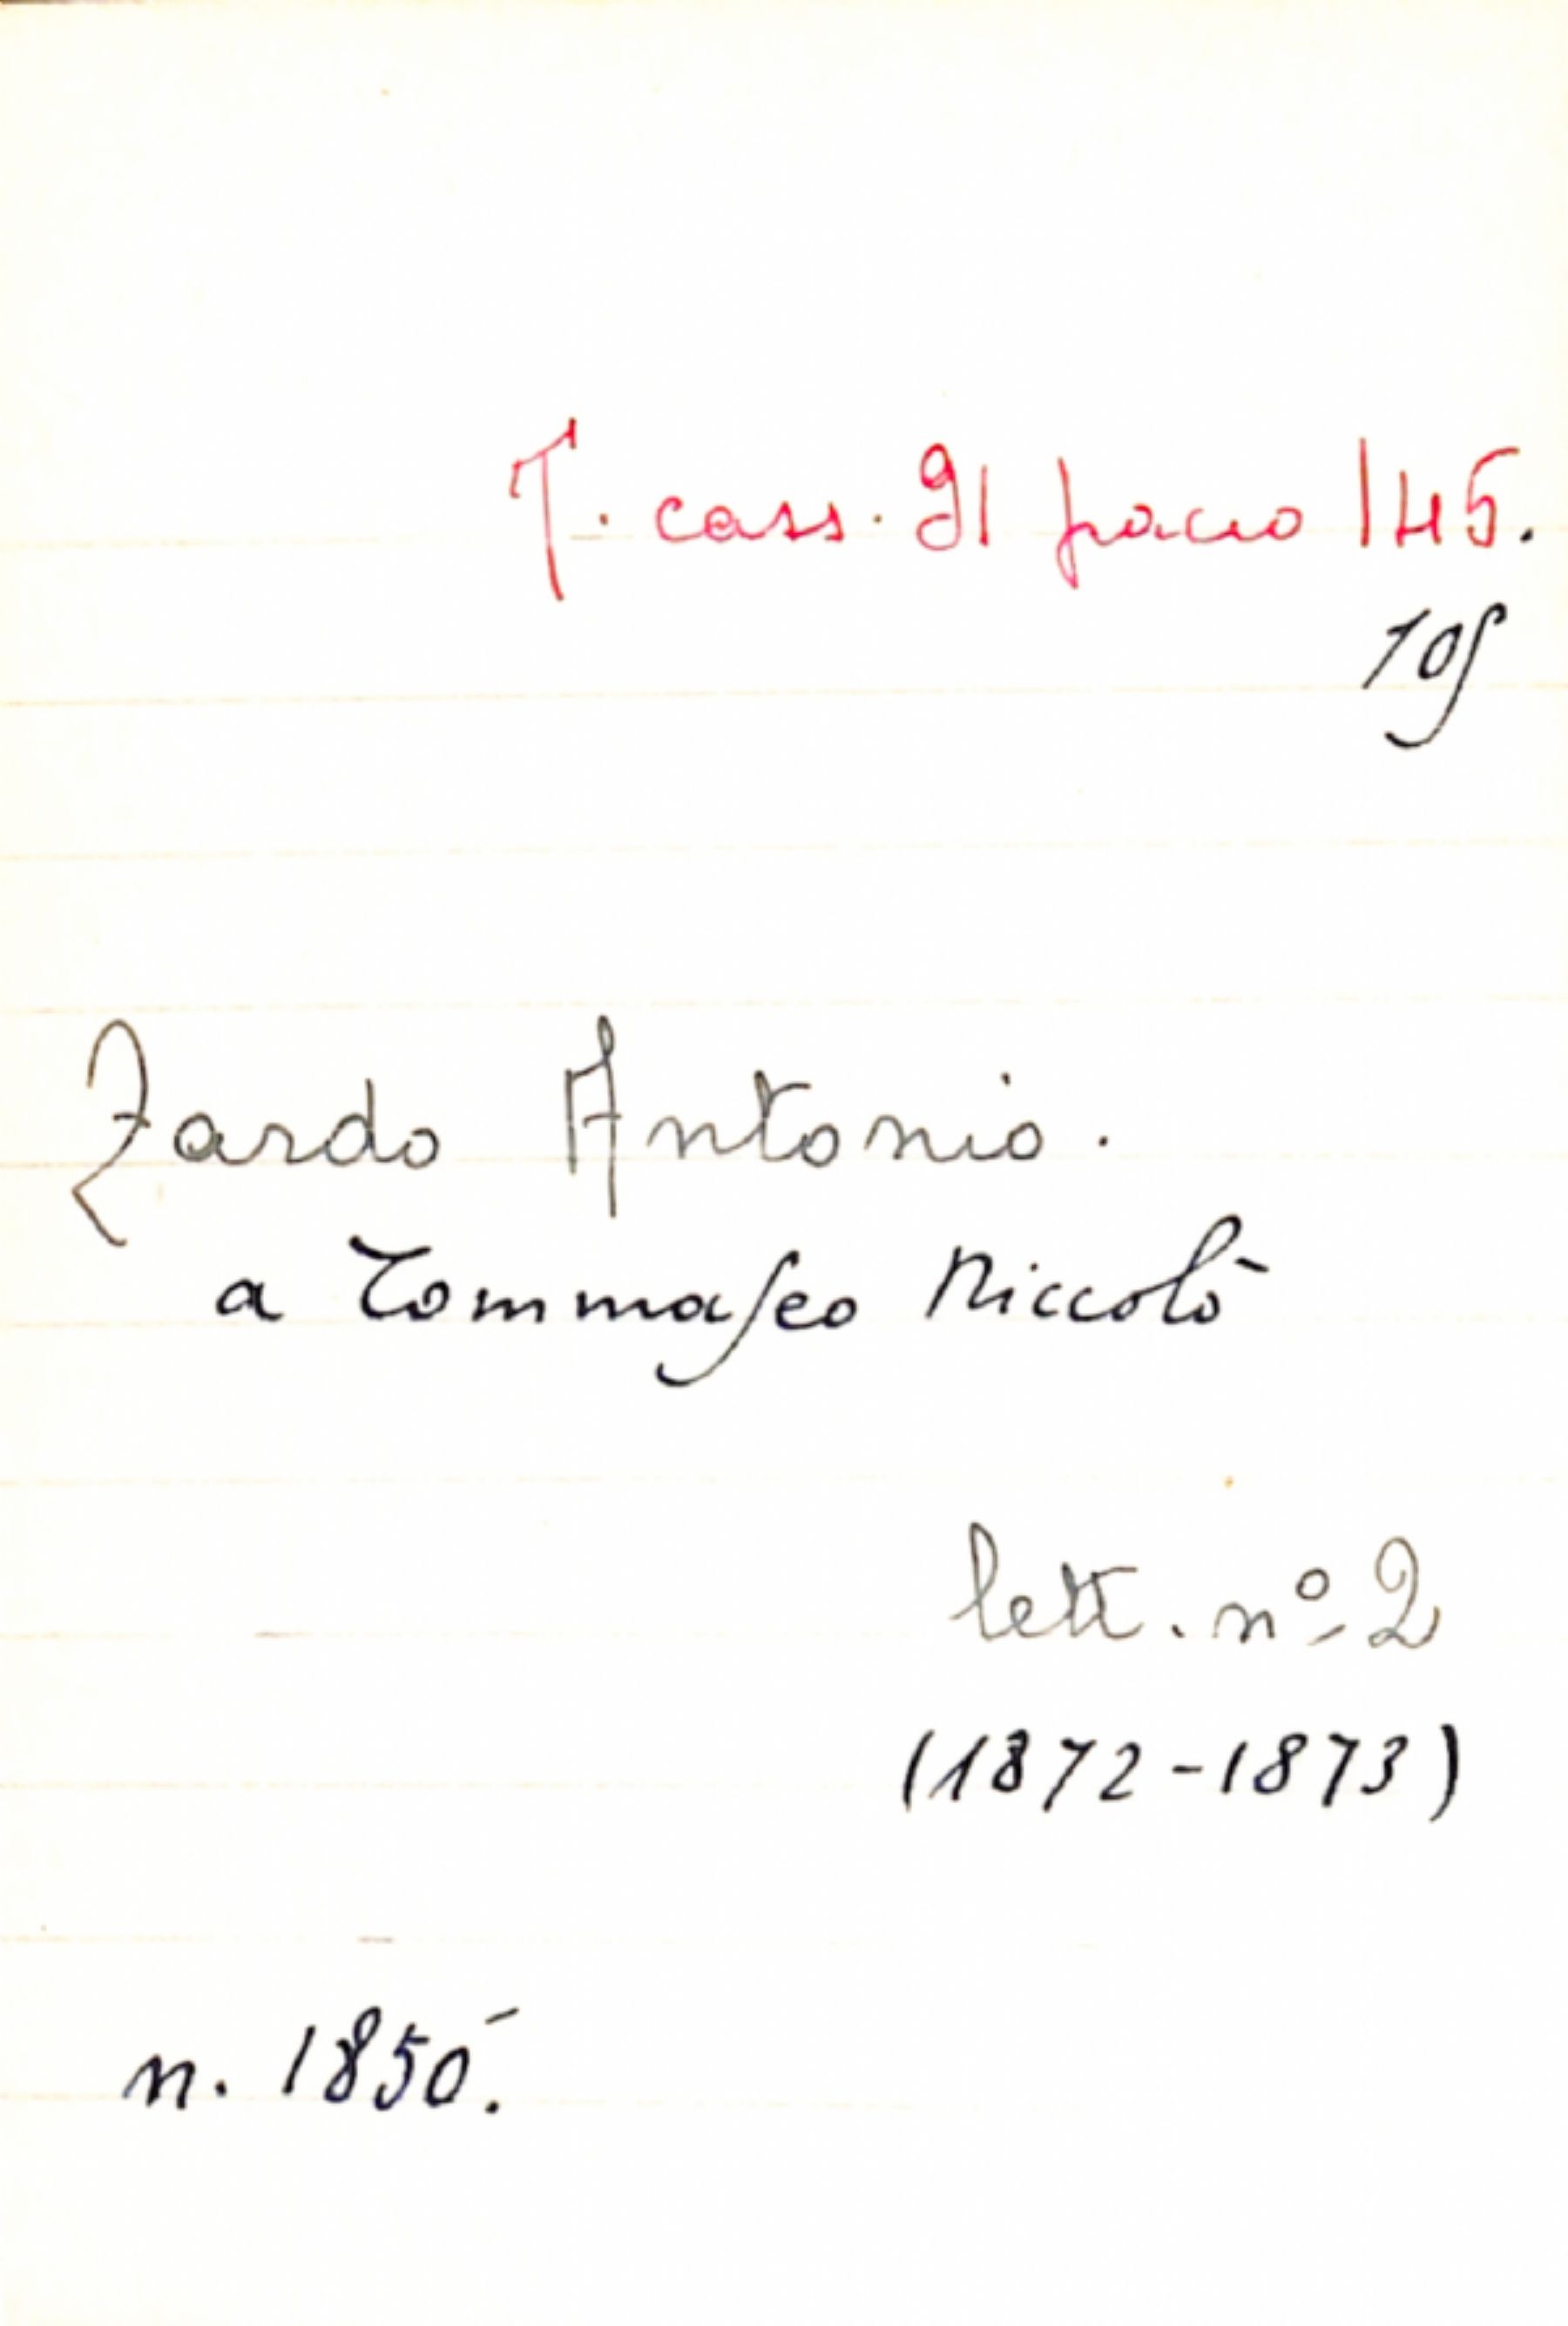 T. cass. 91 pacco 145.
105
Zardo Antonio.
a Tommaseo Niccolò
lett. nº 2
(1872-1873)
n. 1850.